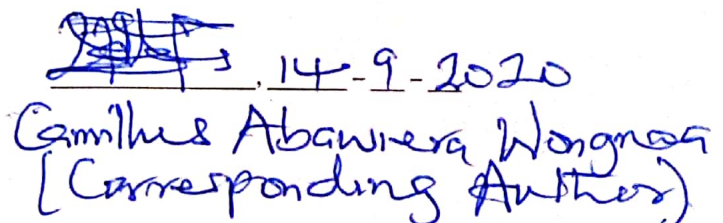 14-9-2020
Camillus Abawiera Wongnaa
(Corresponding Author)